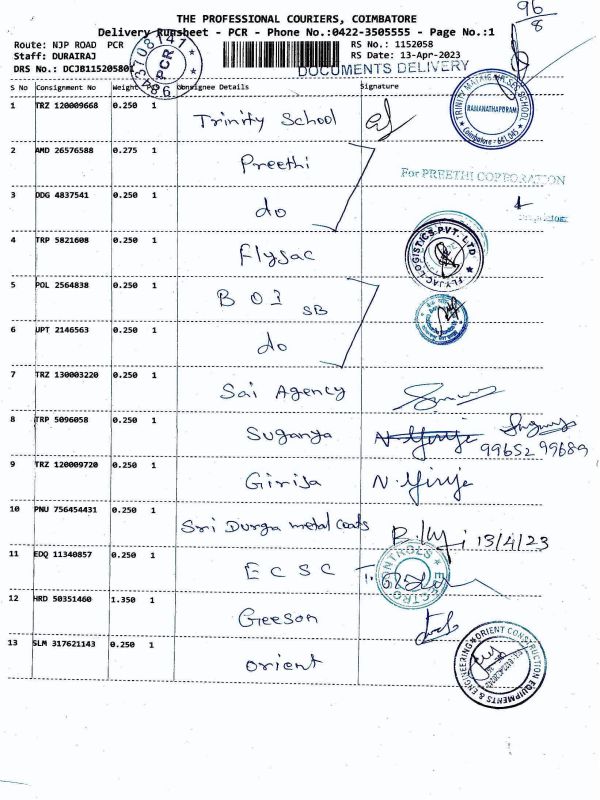 96
8
THE PROFESSIONAL COURIERS, COIMBATORE
Delivery Runsheet - PCR - Phone No.:0422-3505555 - Page No.:1
Route: NJP ROAD PCR
RS No.: 1152058
Staff: DURAIRAJ
RS Date: 13-Apr-2023
DRS No.: DCJB115205801
DOCUMENTS DELIVERY
PCR
S No Consignment No Weight Consignee Details Signature
1 TRZ 120009668 0.250 1 Trinity School
RAMANATHAPURAM
Coimbatore - 641 045
2 AMD 26576588 0.275 1 Preethi
For PREETHI CORPORATION
3 DDG 4837541 0.250 1 do
Proprietor
4 TRP 5821608 0.250 1 Flyjac
FLYJAC LOGISTICS PVT. LTD.
5 POL 2564838 0.250 1 B O I SB
6 UPT 2146563 0.250 1 do
7 TRZ 130003220 0.250 1 Sai Agency
8 TRP 5096058 0.250 1 Suganya
99652 99689
9 TRZ 120009720 0.250 1 Girija N. Girija
10 PNU 756454431 0.250 1 Sri Durga metal coats 13/4/23
11 EDQ 11340857 0.250 1 E C S C
ELECTRO CONTROLS
12 HRD 50351460 1.350 1 Geeson
13 SLM 317621143 0.250 1 Orient
ORIENT CONSTRUCTION EQUIPMENTS & ENGINEERING